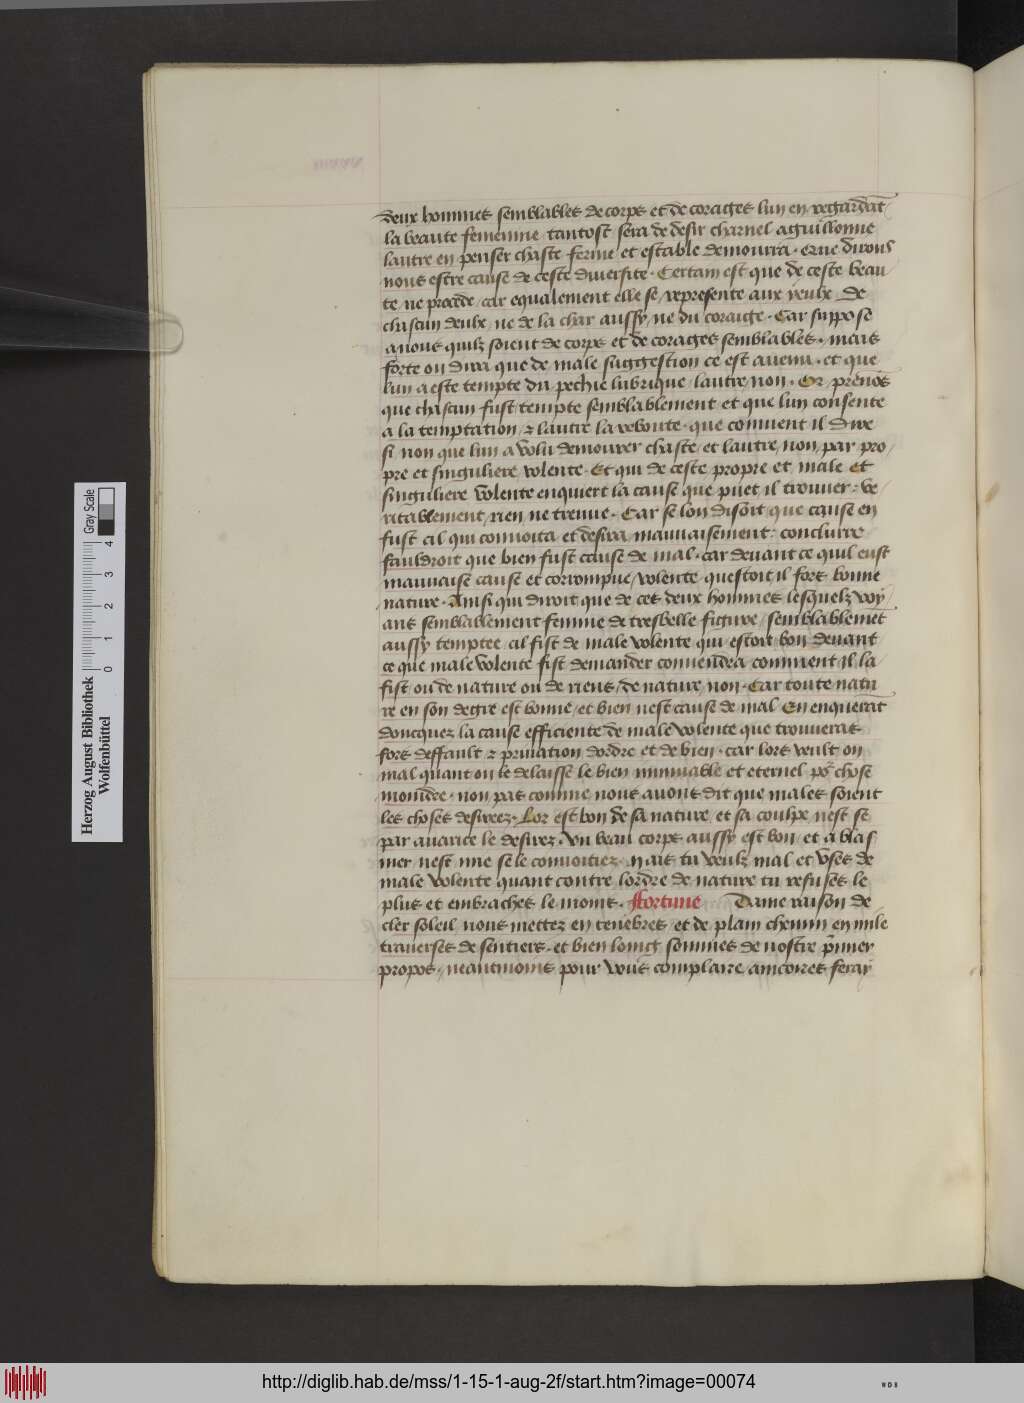 deux hommes semblables de corps et de corages lun en regardāt
la beaute femenine tantost sera de desir charnel aguillonne
lautre en penser chaste ferme et estable demourra. Que dirons
nous estre cause de ceste diversite. Certain est que de ceste beau
te ne procede, car equalement elle se represente aux yeulx de
chascun deulx, ne de la char aussy, ne du coraige. Car suppose
avons quilz soient de corps et de corages semblables. mais
forte on dira que de male suggestion ce est avenu. et que
lun a este tempte du pechie lubrique, lautre non. Or prenōs
que chascun fust tempte semblablement et que lun consente
a la temptation, & lautre la reboute. que convient il dire
si non que lun a volu demourer chaste, et lautre non, par pro
pre et singuliere volente. Et qui de ceste propre et male et
singuliere volente enquiert la cause que puet il trouver. ve
ritablement, rien ne treuve. Car se lon disoit que cause en
fust cil qui convoita et desira mauvaisement: conclurre
fauldroit que bien fust cause de mal. car devant ce quil eust
mauvaise cause et corrompue, volente questoit il fors bonne
nature. Ainsi qui diroit que de ces deux hommes lesquelz voy
ans semblablement femme de tresbelle figure, semblablemēt
aussy temptee cil fist de male volente qui estoit bon devant
ce que male volente fist demander conviendra comment il la
fist ou de nature ou de riens, de nature non. Car toute natu
re en son degre est bonne, et bien nest cause de mal En enquerāt
doncques la cause efficiente de male volente que trouveras
fors deffault & privation dordre et de bien. car lors veult on
mal quant on le delaisse le bien inmuable et eternel po'r chose
moindre. non pas comme nous avons dit que males soient
les choses desireez. Lor est bon de sa nature, et sa coulpe nest se
par avarice le desirez. Un beau corps aussy est bon, et a blas
mer nest mie se le convoitiez. Mais tu veulz mal et uses de
male volente quant contre lordre de nature tu refuses le
plus et embraches le moins. Fortune Dame raison de
cler soleil nous mettez en tenebres, et de plain chemin en mile
traverses de sentiers. et bien loing sommes de nostre p̄mier
propos. neantmoins pour vous complaire, ancoires feray
Herzog August Bibliothek
Wolfenbüttel
0 1 2 3 4
Gray Scale
http://diglib.hab.de/mss/1-15-1-aug-2f/start.htm?image=00074
WDB